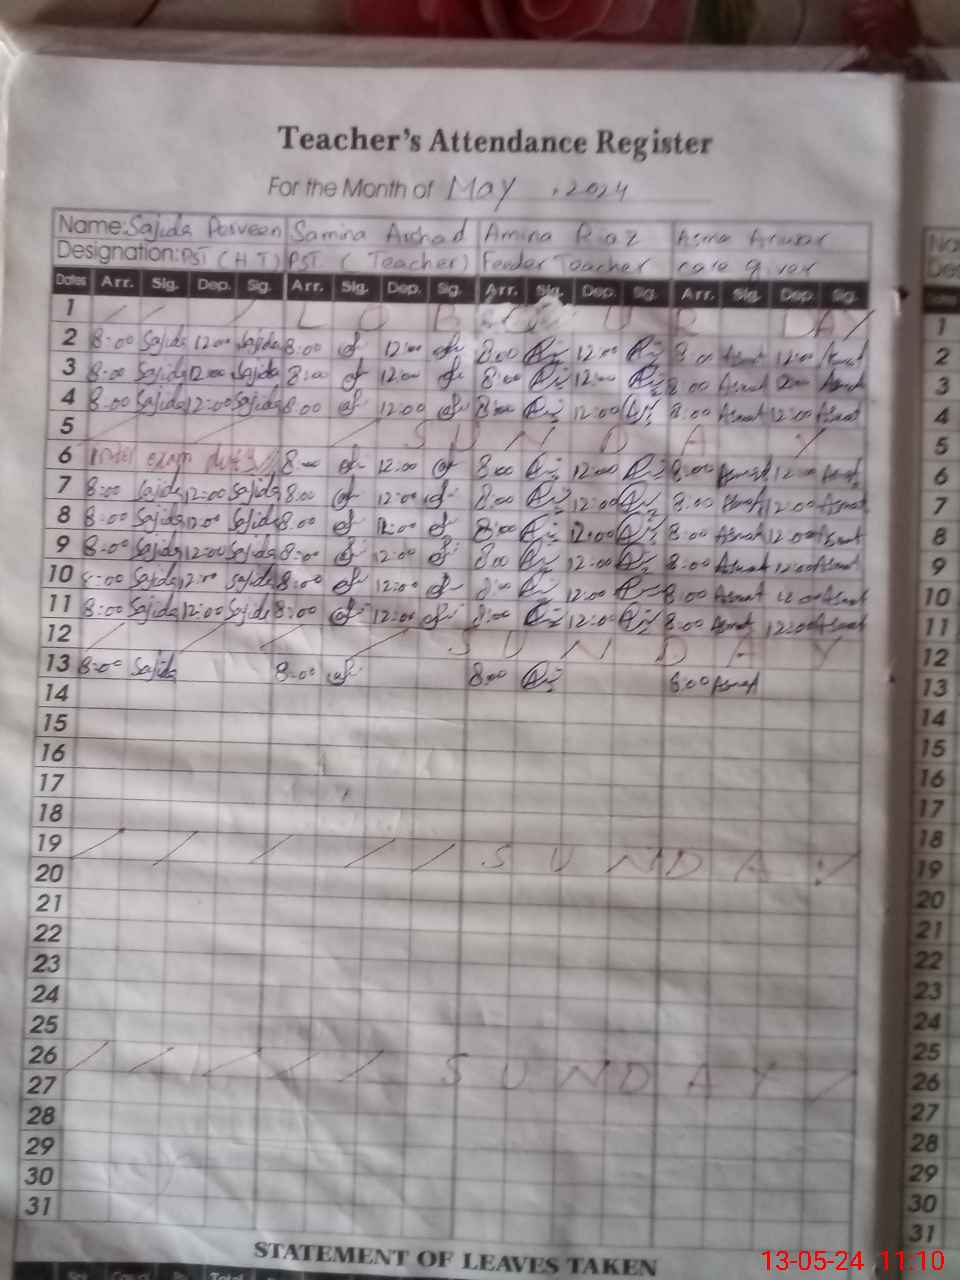 Teacher's Attendance Register
For the Month of May , 2024
Name: Sajida Parveen Samina Arshad Amina Riaz Asma Anwar
Designation: PST (H T) PST ( Teacher) Feeder Teacher care giver
Dates Arr. Sig. Dep. Sig. Arr. Sig. Dep. Sig. Arr. Sig. Dep. Sig. Arr. Sig. Dep. Sig.
1 L O B O U R DAY
2 8:00 Sajida 12:00 Sajida 8:00 12:00 8:00 12:00 8:00 12:00
3 8:00 Sajida 12:00 Sajida 8:00 12:00 8:00 12:00 8:00 Asmat 12:00 Asmat
4 8:00 Sajida 12:00 Sajida 8:00 12:00 8:00 12:00 8:00 Asmat 12:00 Asmat
5 S U N D A Y
6 exam duty 8:00 12:00 8:00 12:00 8:00 Asmat 12:00 Asmat
7 8:00 Sajida 12:00 Sajida 8:00 12:00 8:00 12:00 8:00 Asmat 12:00 Asmat
8 8:00 Sajida 12:00 Sajida 8:00 12:00 8:00 12:00 8:00 Asmat 12:00 Asmat
9 8:00 Sajida 12:00 Sajida 8:00 12:00 8:00 12:00 8:00 Asmat 12:00 Asmat
10 8:00 Sajida 12:00 Sajida 8:00 12:00 8:00 12:00 8:00 Asmat 12:00 Asmat
11 8:00 Sajida 12:00 Sajida 8:00 12:00 8:00 12:00 8:00 Asmat 12:00 Asmat
12 S U N D A Y
13 8:00 Sajida 8:00 8:00 8:00 Asmat
14
15
16
17
18
19 S U N D A Y
20
21
22
23
24
25
26 S U N D A Y
27
28
29
30
31
STATEMENT OF LEAVES TAKEN
Total
1
2
3
4
5
6
7
8
9
10
11
12
13
14
15
16
17
18
19
20
21
22
23
24
25
26
27
28
29
30
31
13-05-24 11:10